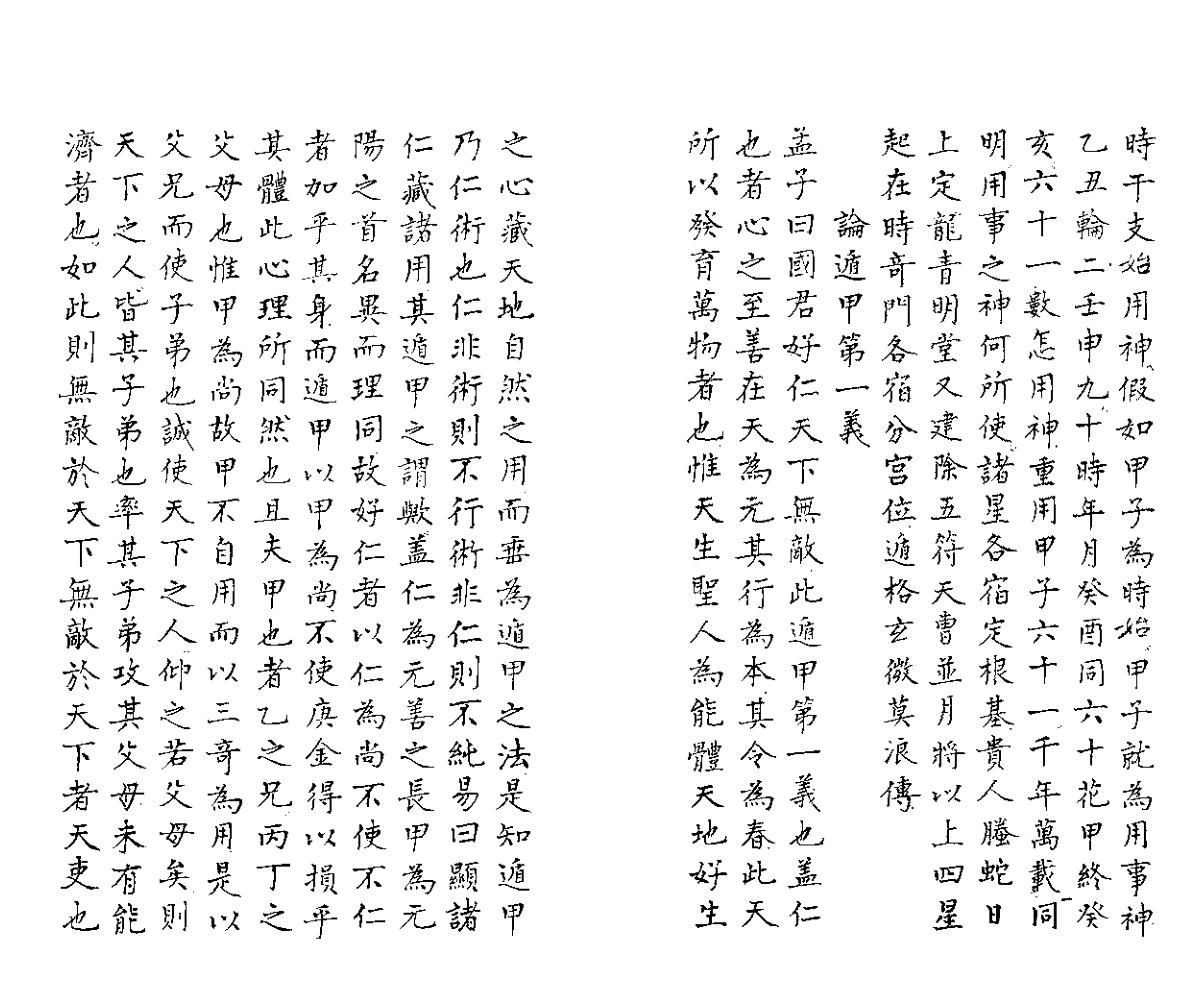 時干支始用神假如甲子為時始甲子就為用事神
乙丑輪二壬申九十時年月癸酉同六十花甲終癸
亥六十一數怎用神重用甲子六十一千年萬載同
明用事之神何所使諸星各宿定根基貴人螣蛇日
上定龍青明堂又建除五符天曹並月將以上四星
起在時奇門各宿分宮位遁格玄微莫浪傳
論遁甲第一義
孟子曰國君好仁天下無敵此遁甲第一義也蓋仁
也者心之至善在天為元其行為本其令為春此天
所以發育萬物者也惟天生聖人為能體天地好生
之心藏天地自然之用而垂為遁甲之法是知遁甲
乃仁術也仁非術則不行術非仁則不純易曰顯諸
仁藏諸用其遁甲之謂歟蓋仁為元善之長甲為元
陽之首名異而理同故好仁者以仁為尚不使不仁
者加乎其身而遁甲以甲為尚不使庚金得以損乎
其體此心理所同然也且夫甲也者乙之兄丙丁之
父母也惟甲為尚故甲不自用而以三奇為用是以
父兄而使子弟也誠使天下之人仰之若父母矣則
天下之人皆其子弟也率其子弟攻其父母未有能
濟者也如此則無敵於天下無敵於天下者天吏也